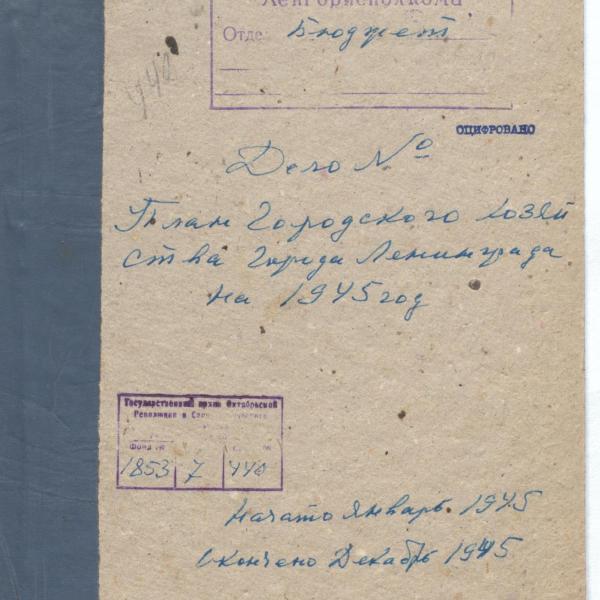 Ленгорисполкома
Отде. Бюджет
440
ОЦИФРОВАНО
Дело №
План Городского хозяй
ства Города Ленинграда
на 1945 год
Государственный архив Октябрьской
Революции и
Фонд №
1853 7 440
Начато Январь 1945
Окончено Декабрь 1945